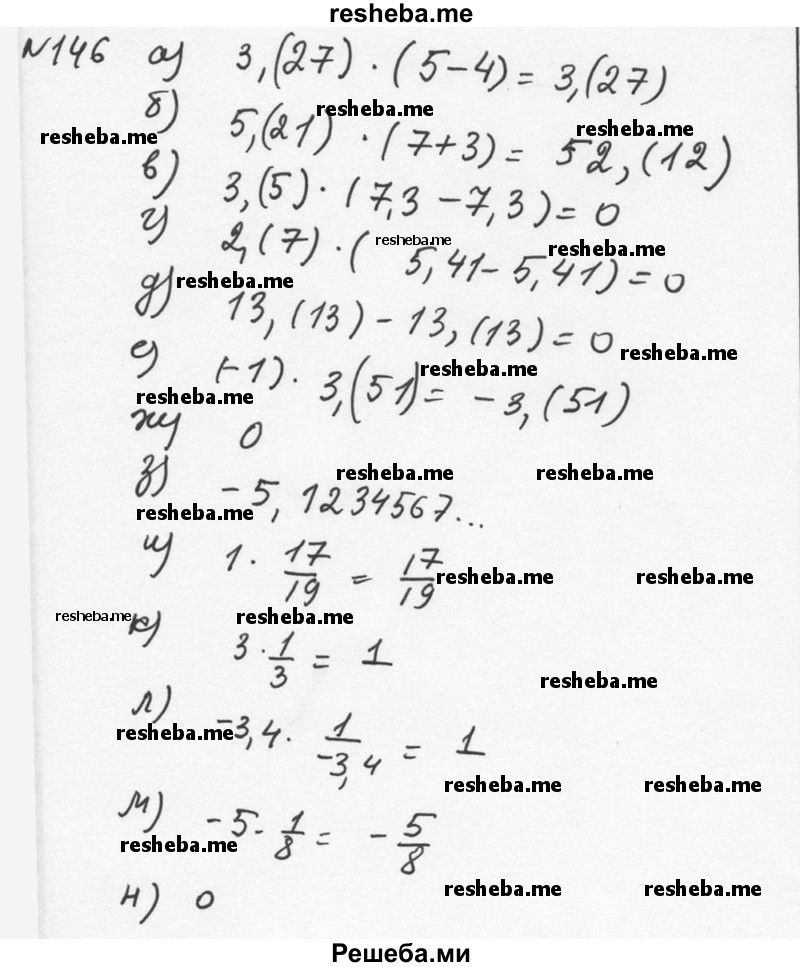 resheba.me
№146 а) 3,(27) · (5-4) = 3,(27)
resheba.me
б) 5,(21) · (7+3) = 52,(12)
resheba.me
resheba.me
в) 3,(5) · (7,3 - 7,3) = 0
г) 2,(7) · ( 5,41 - 5,41) = 0
resheba.me
resheba.me
resheba.me
д) 13,(13) - 13,(13) = 0
resheba.me
е) (-1) · 3,(51) = -3,(51)
resheba.me
resheba.me
ж) 0
resheba.me
resheba.me
з) -5,1234567...
resheba.me
и) 1 · 17/19 = 17/19
resheba.me
resheba.me
resheba.me
resheba.me
к) 3 · 1/3 = 1
resheba.me
л) -3,4 · 1/-3,4 = 1
resheba.me
resheba.me
resheba.me
м) -5 · 1/8 = -5/8
resheba.me
н) 0
resheba.me
resheba.me
Решеба.ми